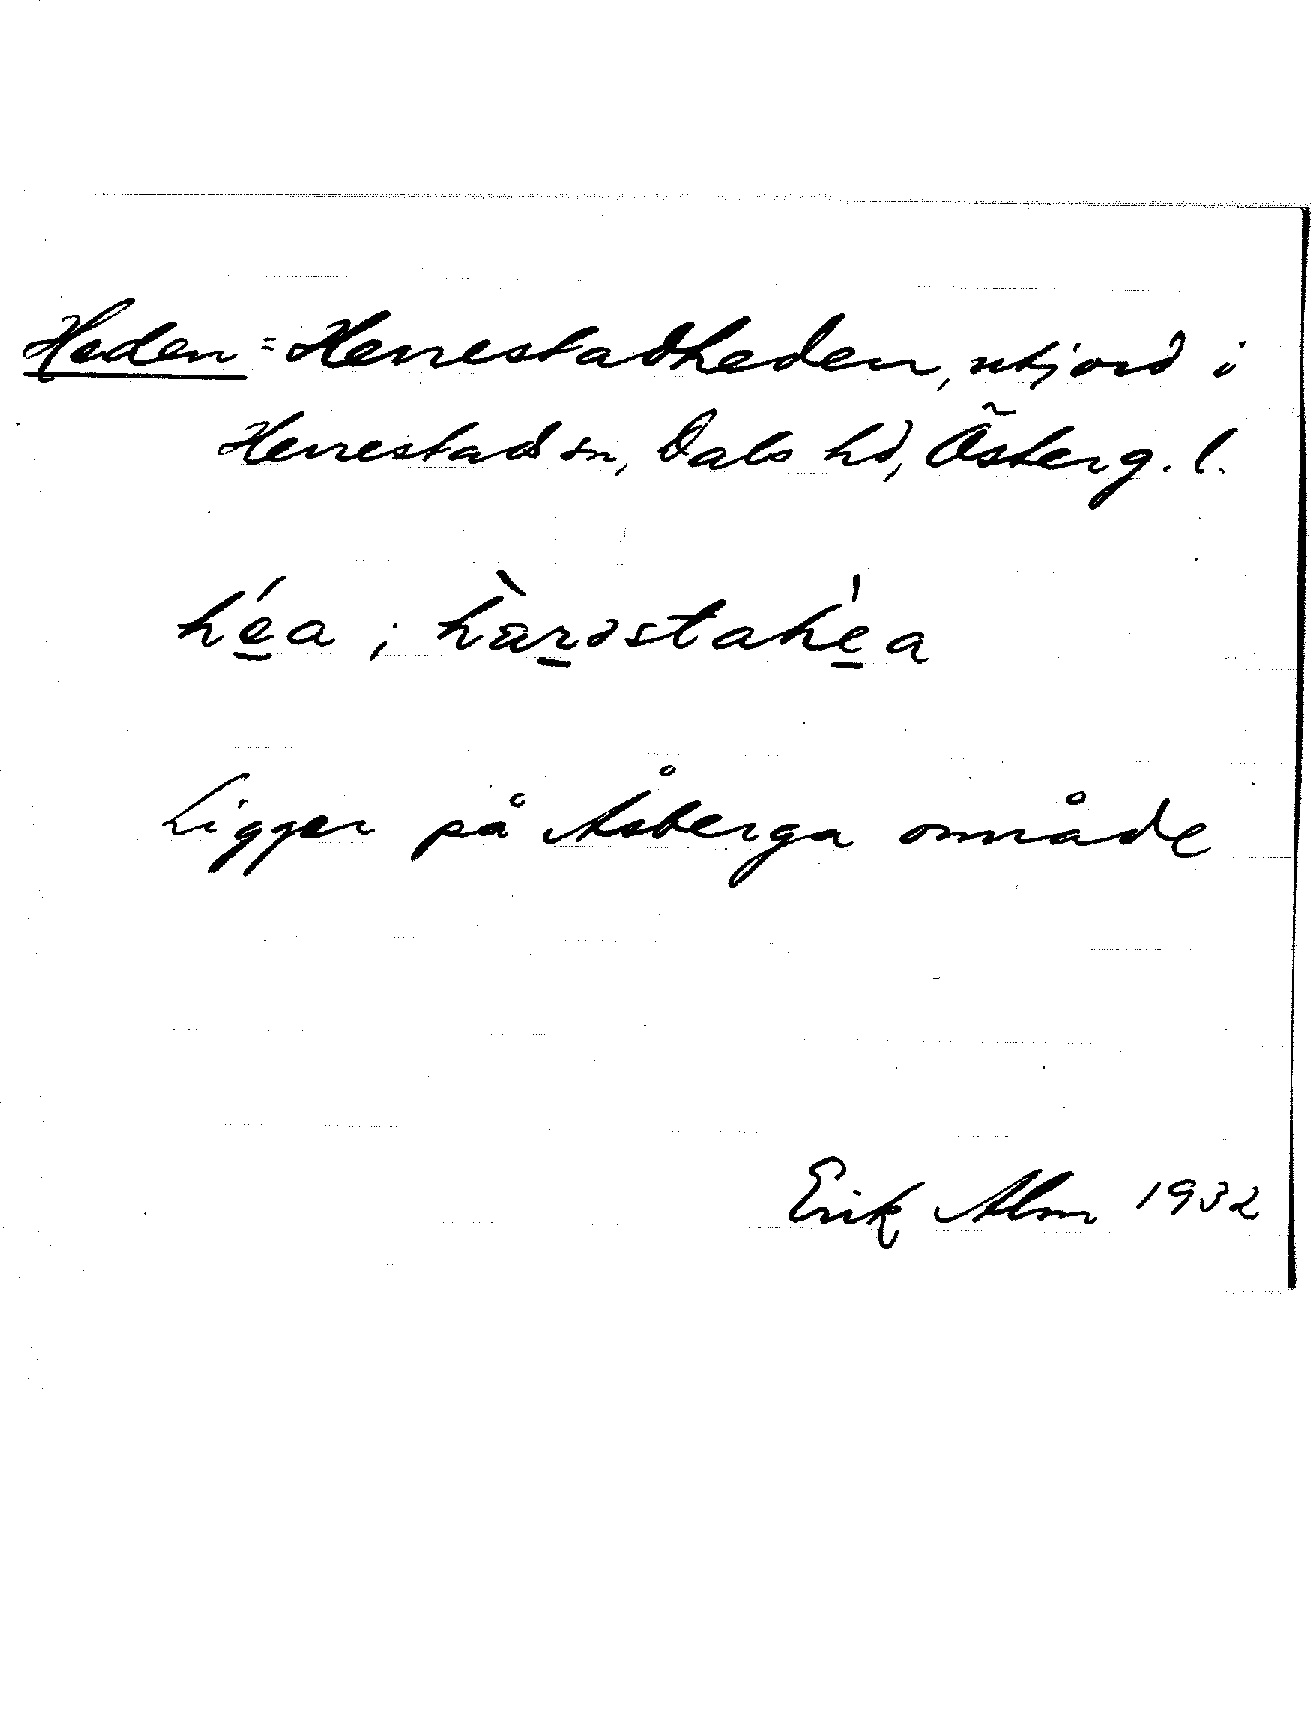 Heden = Herrestadheden, utjord i
Herrestad sn, Dals hd, Österg. l.
hé̲a ; hàr̲əstahe̲̍a
Ligger på Åsberga område
Erik Alm 1932